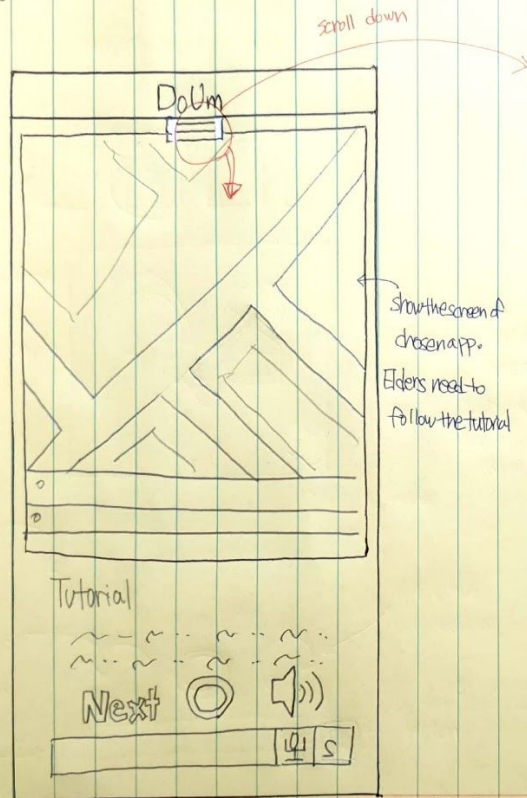 scroll down
DoUm
show the screen of
chosen app.
Elders need to
follow the tutorial
Tutorial
Next
S